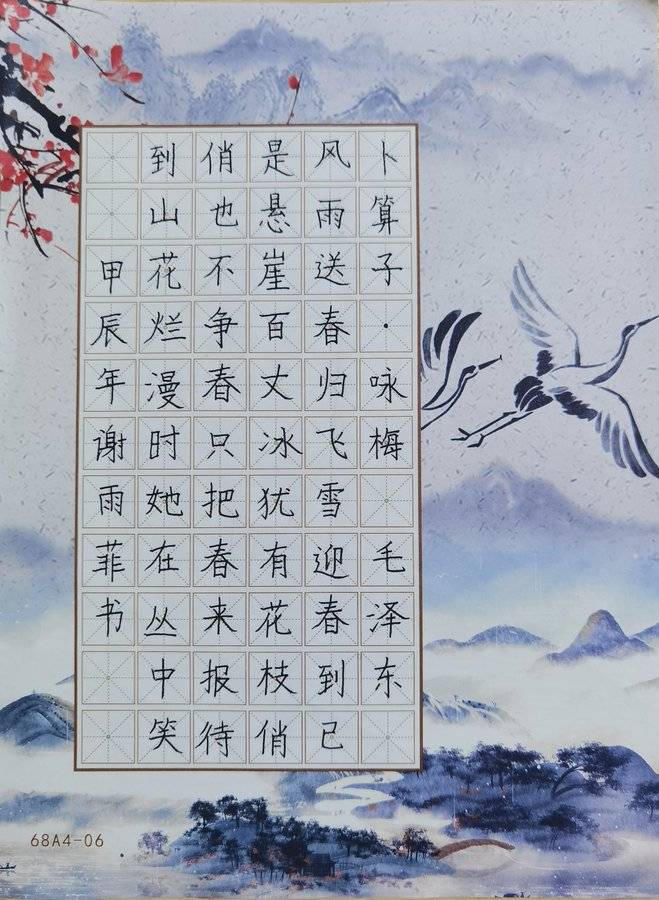 卜算子·咏梅 毛泽东
风雨送春归飞雪迎春到已
是悬崖百丈冰犹有花枝俏
俏也不争春只把春来报待
到山花烂漫时她在丛中笑
甲辰年谢雨菲书
68A4-06